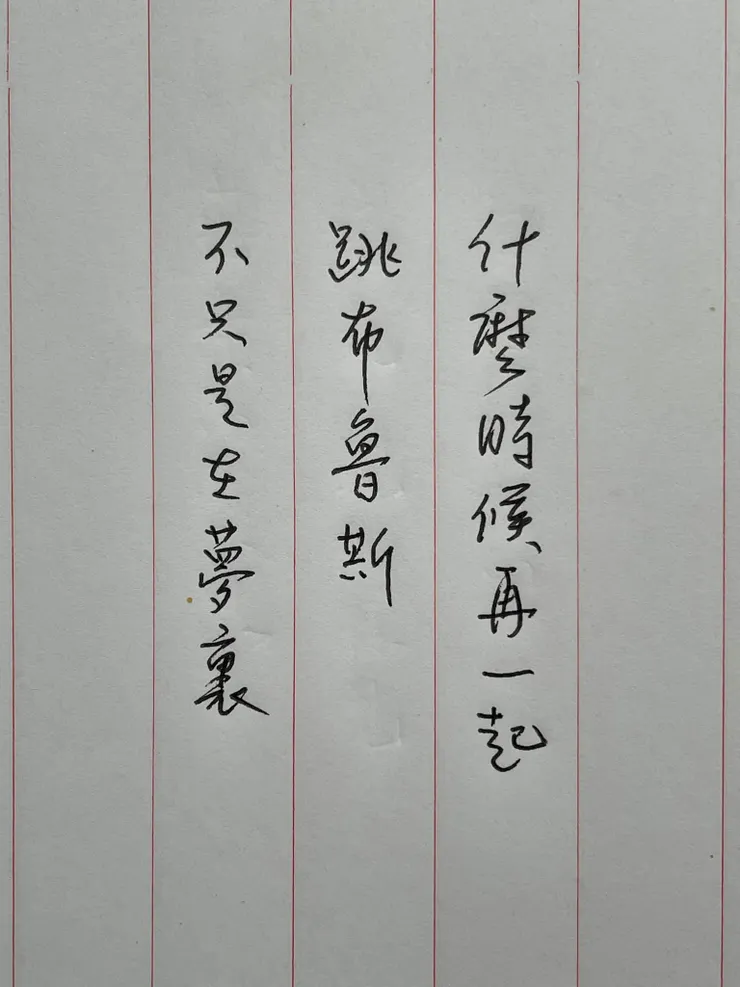 什麼時候再一起
跳布魯斯
不只是在夢裏